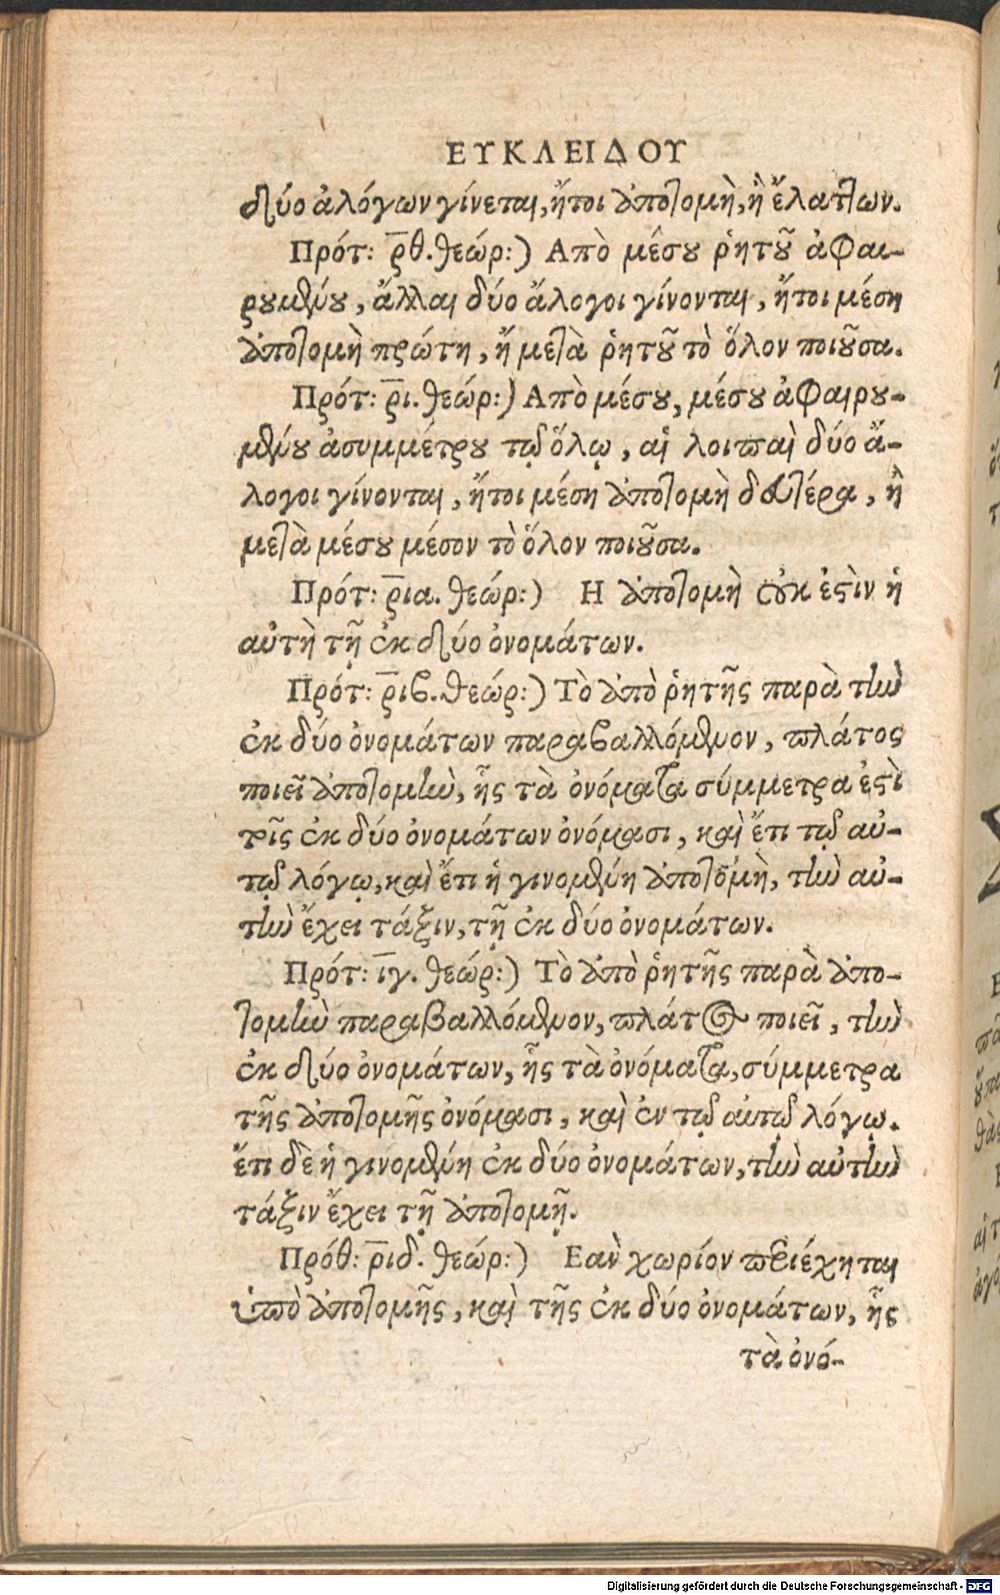 ΕΥΚΛΕΙΔΟΥ
δύο ἀλόγων γίνεται, ἤτοι ἀποτομὴ, ἢ ἔλαττων.
Πρότ: ρθ. θεώρ:) Απὸ μέσου ῥητοῦ ἀφαι-
ρουμένου, ἄλλαι δύο ἄλογοι γίνονται, ἤτοι μέση
ἀποτομὴ πρώτη, ἤ μετὰ ῥητοῦ τὸ ὅλον ποιοῦσα.
Πρότ: ρι. θεώρ:) Απὸ μέσου, μέσου ἀφαιρου-
μένου ἀσυμμέτρου τῷ ὅλῳ, αἱ λοιπαὶ δύο ἄ-
λογοι γίνονται, ἤτοι μέση ἀποτομὴ δευτέρα, ἢ
μετὰ μέσου μέσον τὸ ὅλον ποιοῦσα.
Πρότ: ρια. θεώρ:) Η ἀποτομὴ οὐκ ἐστὶν ἡ
αὐτὴ τῇ ἐκ δύο ὀνομάτων.
Πρότ: ριβ. θεώρ:) Τὸ ἀπὸ ῥητῆς παρὰ τὴν
ἐκ δύο ὀνομάτων παραβαλλόμενον, πλάτος
ποιεῖ ἀποτομὴν, ἧς τὰ ὀνόματα σύμμετρα ἐστὶ
τοῖς ἐκ δύο ὀνομάτων ὀνόμασι, καὶ ἔτι τῷ αὐ-
τῷ λόγῳ, καὶ ἔτι ἡ γινομένη ἀποτομὴ, τὴν αὐ-
τὴν ἔχει τάξιν, τῇ ἐκ δύο ὀνομάτων.
Πρότ: ιγ. θεώρ:) Τὸ ἀπὸ ῥητῆς παρὰ ἀπο-
τομὴν παραβαλλόμενον, πλάτος ποιεῖ, τὴν
ἐκ δύο ὀνομάτων, ἧς τὰ ὀνόματα, σύμμετρα
τῆς ἀποτομῆς ὀνόμασι, καὶ ἐν τῷ αὐτῷ λόγῳ.
ἔτι δὲ ἡ γινομένη ἐκ δύο ὀνομάτων, τὴν αὐτὴν
τάξιν ἔχει τῇ ἀποτομῇ.
Πρόθ: ριδ. θεώρ:) Εαν χωρίον περιέχηται
ὑπὸ ἀποτομῆς, καὶ τῆς ἐκ δύο ὀνομάτων, ἧς
τὰ ὀνό-
Digitalisierung gefördert durch die Deutsche Forschungsgemeinschaft - DFG